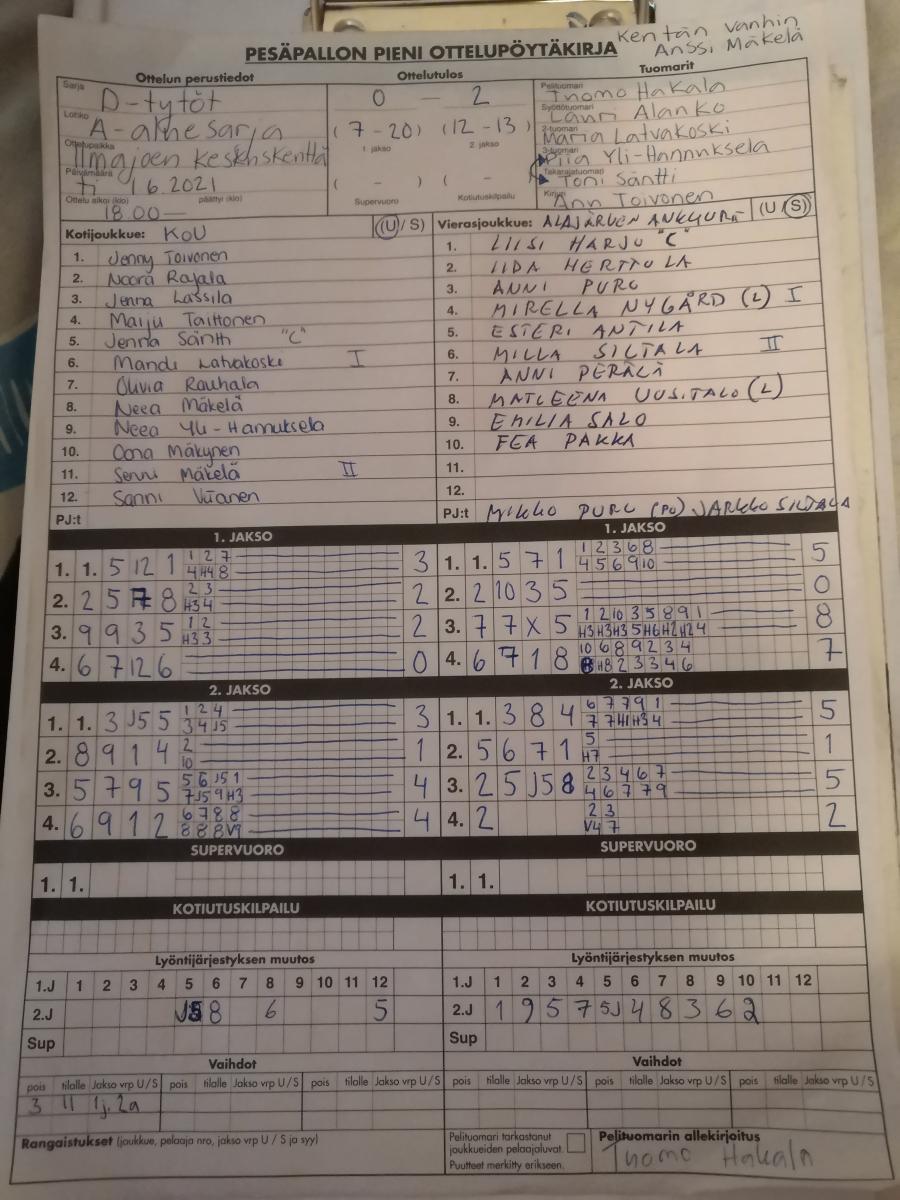 Kentän vanhin
Anssi Mäkelä
PESÄPALLON PIENI OTTELUPÖYTÄKIRJA
Ottelun perustiedot
Ottelutulos
Tuomarit
Sarja D-tytöt
Lohko A-aihesarja
Ottelupaikka Ilmajoen keskuskenttä
Päivämäärä ti 1.6.2021
Ottelu alkoi (klo) 18.00 — päättyi (klo)
0 — 2
(7-20) (12-13)
1. jakso 2. jakso
( - ) ( - )
Supervuoro Kotiutuskilpailu
Pelituomari Tuomo Hakala
Syöttötuomari Lauri Alanko
2-tuomari Maria Latvakoski
3-tuomari Piia Yli-Hannuksela
Takarajatuomari Toni Säntti
Kirjuri Ann Toivonen
Kotijoukkue: KoU (U/S)
1. Jenny Toivonen
2. Noora Rajala
3. Jenna Lassila
4. Maiju Taittonen
5. Jenna Säntti "C"
6. Mandi Latvakoski I
7. Olivia Rauhala
8. Neea Mäkelä
9. Neea Yli-Hannuksela
10. Oona Mäkynen
11. Senni Mäkelä II
12. Sanni Viianen
PJ:t
Vierasjoukkue: ALAJÄRVEN ANKKURIT (U/S)
1. LIISI HARJU "C"
2. IIDA HERTTULA
3. ANNI PURO
4. MIRELLA NYGÅRD (L) I
5. ESTERI ANTILA
6. MILLA SILTALA II
7. ANNI PERÄLÄ
8. MATLEENA UUSITALO (L)
9. EMILIA SALO
10. FEA PAKKA
11.
12.
PJ:t MIKKO PURO (PJ) JARKKO SILTALA
1. JAKSO
1. 1. 5 12 1 1 2 7 3
4 H4 8
2. 2 5 7 8 2 3 2
H3 4
3. 9 9 3 5 1 2 2
H3 3
4. 6 7 12 6 0
1. JAKSO
1. 1. 5 7 1 1 2 3 6 8 5
4 5 6 9 10
2. 2 10 3 5 0
3. 7 7 X 5 1 2 10 3 5 8 9 1 8
H3 H3 H3 5 H6 H2 H2 4
4. 6 7 1 8 10 6 8 9 2 3 4 7
8 H8 2 3 3 4 6
2. JAKSO
1. 1. 3 J5 5 1 2 4 3
3 4 J5
2. 8 9 1 4 2 1
10
3. 5 7 9 5 5 6 J5 1 4
7 J5 9 H3
4. 6 9 1 2 6 7 8 8 4
8 8 8 V9
2. JAKSO
1. 1. 3 8 4 6 7 7 9 1 5
7 7 H1 H3 4
2. 5 6 7 1 5 1
H7
3. 2 5 J5 8 2 3 4 6 7 5
4 6 7 7 9
4. 2 2 3 2
V4 7
SUPERVUORO
1. 1.
SUPERVUORO
1. 1.
KOTIUTUSKILPAILU
KOTIUTUSKILPAILU
Lyöntijärjestyksen muutos
1.J 1 2 3 4 5 6 7 8 9 10 11 12
2.J J5 8 6 5
Sup
Lyöntijärjestyksen muutos
1.J 1 2 3 4 5 6 7 8 9 10 11 12
2.J 1 9 5 7 5J 4 8 3 6 2
Sup
Vaihdot
pois tilalle Jakso vrp U/S pois tilalle Jakso vrp U/S pois tilalle Jakso vrp U/S
3 11 1j. 2a
Vaihdot
pois tilalle Jakso vrp U/S pois tilalle Jakso vrp U/S pois tilalle Jakso vrp U/S
Rangaistukset (joukkue, pelaaja nro, jakso vrp U / S ja syy)
Pelituomari tarkastanut
joukkueiden pelaajaluvat.
Puutteet merkitty erikseen.
Pelituomarin allekirjoitus
Tuomo Hakala